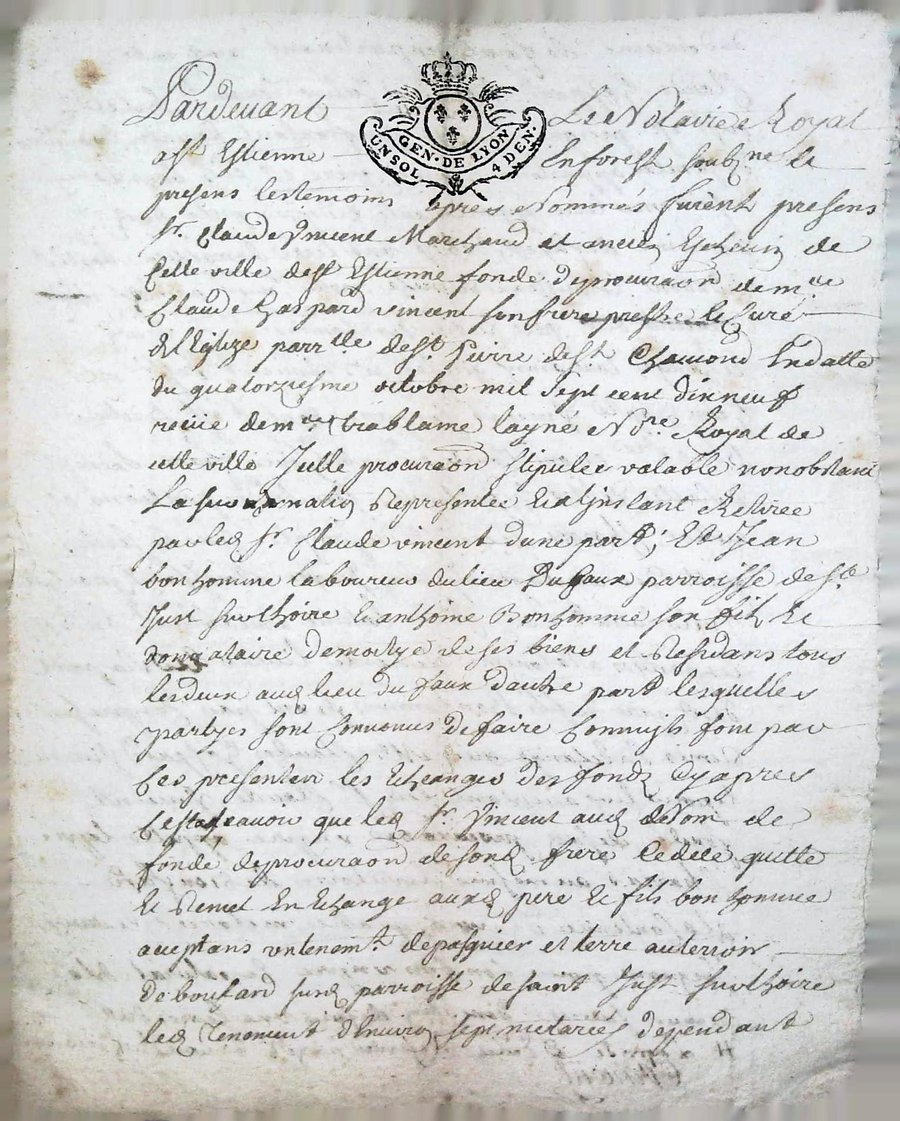 Pardevant Le Notaire Royal
GEN. DE LYON
UN SOL 4 DEN.
a St Estienne En forest soubzne le
presens les temoins apres Nommes furent presens
Sr. Claude Vincent Marchand et ancien Eschevin de
Cette ville de St Estienne fonde de procuraon de mre
Claude Gaspard vincent son frere prestre et Curé
de l'Eglize parrlle de St. pierre de St. Chamond En datte
du quatorziesme octobre mil sept cent dixneuf
receüe de me Trablaine layné Nore Royal de
cette ville Jcelle procuraon stipulée valable nonobstant
La surannation Representée Et a l'jnstant Retirée
par led Sr. Claude vincent d'une part, Et Jean
bonhomme laboureur du lieu Du faux parroisse de St
Just sur Loire Et anthoine Bonhomme son fils Et
donnataire de motye de ses biens et Residans tous
les deux aud lieu du faux d'autre part lesquelles
partyes sont Convenues de faire Comme ils font par
Ces presentes les Echanges des fondz Cy apres
C'est a scavoir que led Sr. Vincent aud Nom de
fonde de procuraon de sond frere Cede quitte
Et Remet En Echange auxd pere Et fils bonhomme
aceptans un tenemt. de pasquier et terre au terroir
de boufard sur parroisse de saint Just sur Loire
led Tenement d'Environ sept metanées deppendant